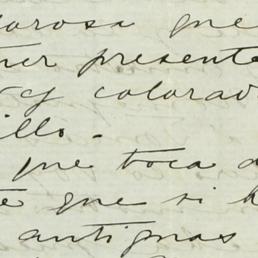 orosa que
ner presente
y colorad
illo.-
que toca a
te que si h
antiguas